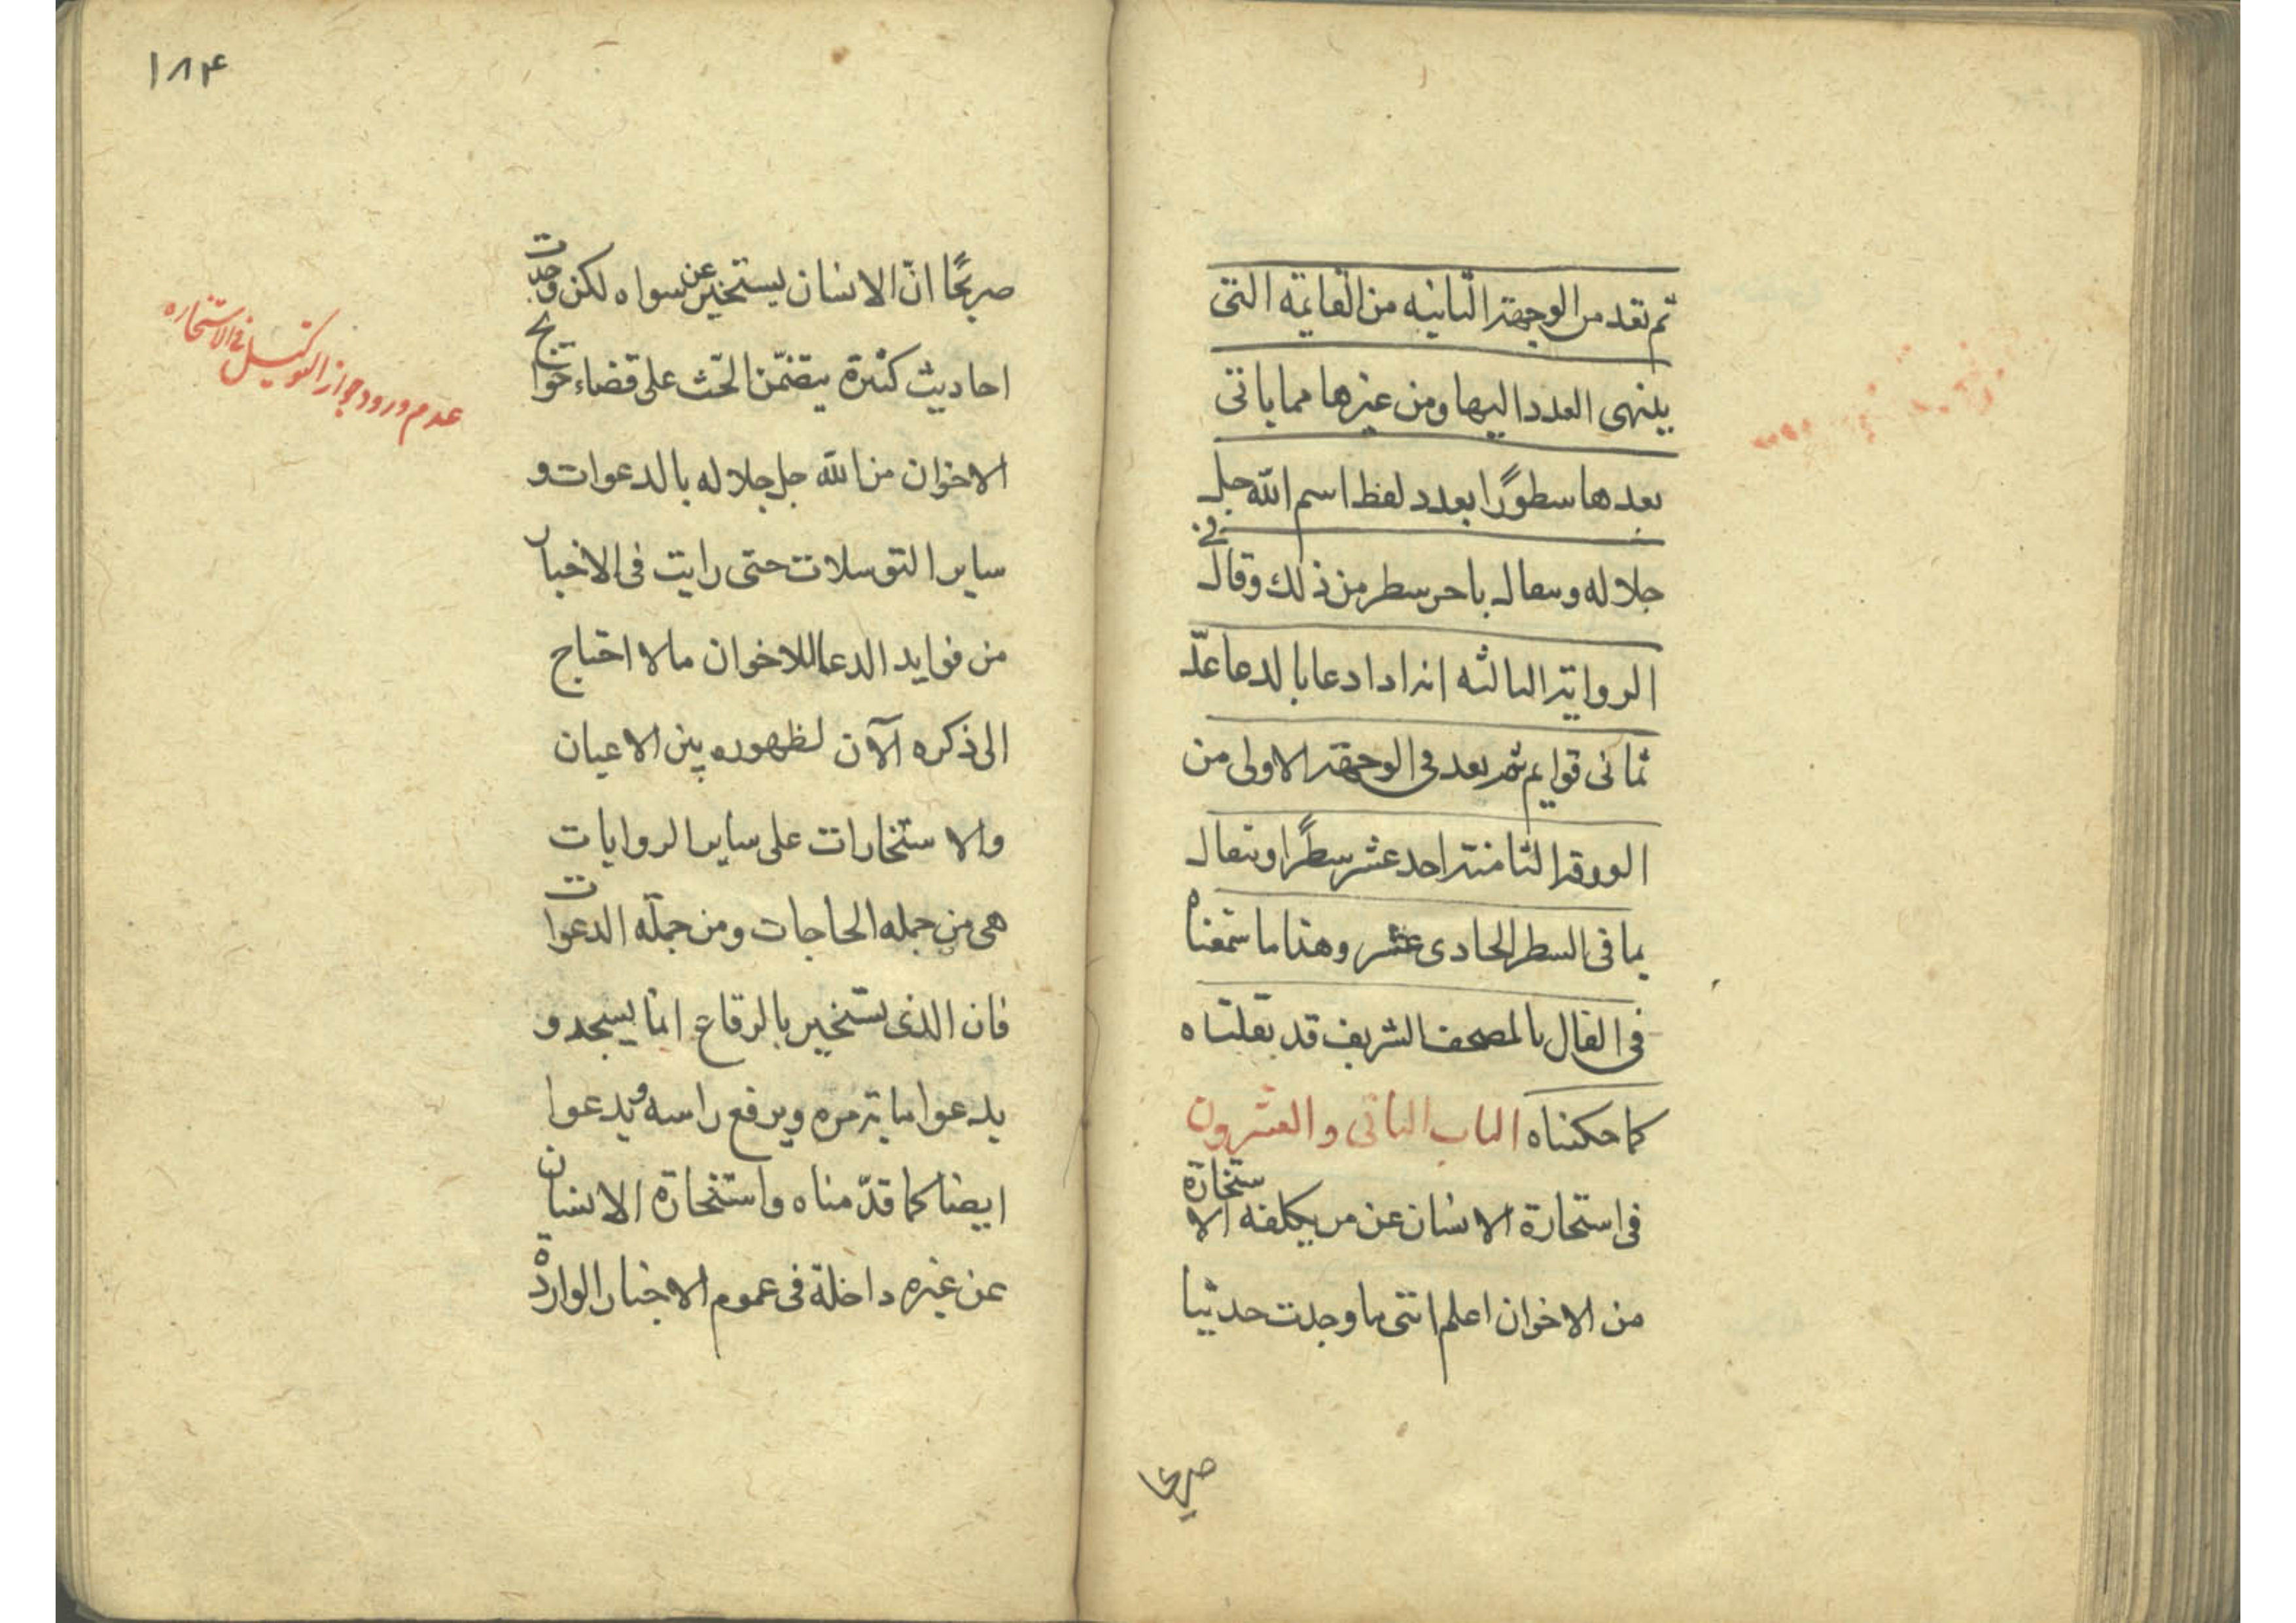 ثم تعد من الوجهة الثانيه من القايمة التى
ينتهى العدد اليها ومن غيرها مما ياتى
بعدها سطورًا بعدد لفظ اسم الله جل
جلاله وتتفال باخر سطر من ذلك وقال فى
الرواية الثالثه انه اذا دعا بالدعا عدّ
ثمانى قوايم ثم يعد فى الوجهة الاولى من
الورقة الثامنة احد عشر سطرًا ويتفال
بما فى السطر الحادى عشر وهذا ما سمعناه
فى الفال بالمصحف الشريف قد نقلناه
كما حكيناه الباب الثانى والعشرون
فى استخارة الانسان عن من يكلفه الاستخارة
من الاخوان اعلم اننى ما وجدت حديثا
صريحا
١٨۴
صريحًا انّ الانسان يستخير عن سواه لكن وجدت
احاديث كثيرة يتضمّن الحّث على قضاء حوايج
الاخوان من الله جل جلاله بالدعوات و
ساير التوسلات حتى رايت فى الاخبار
من فوايد الدعا للاخوان ما لا احتاج
الى ذكره الآن لظهوره بين الاعيان
والاستخارات على ساير الروايات
هى من جمله الحاجات ومن جملة الدعوات
فان الذى يستخير بالرقاع انما يسجد و
يدعوا مائة مره ويرفع راسه ويدعوا
ايضا كما قدّمناه واستخارة الانسان
عن غيره داخلة فى عموم الاخبار الواردة
عدم ورود جواز التوكيل فى الاستخاره